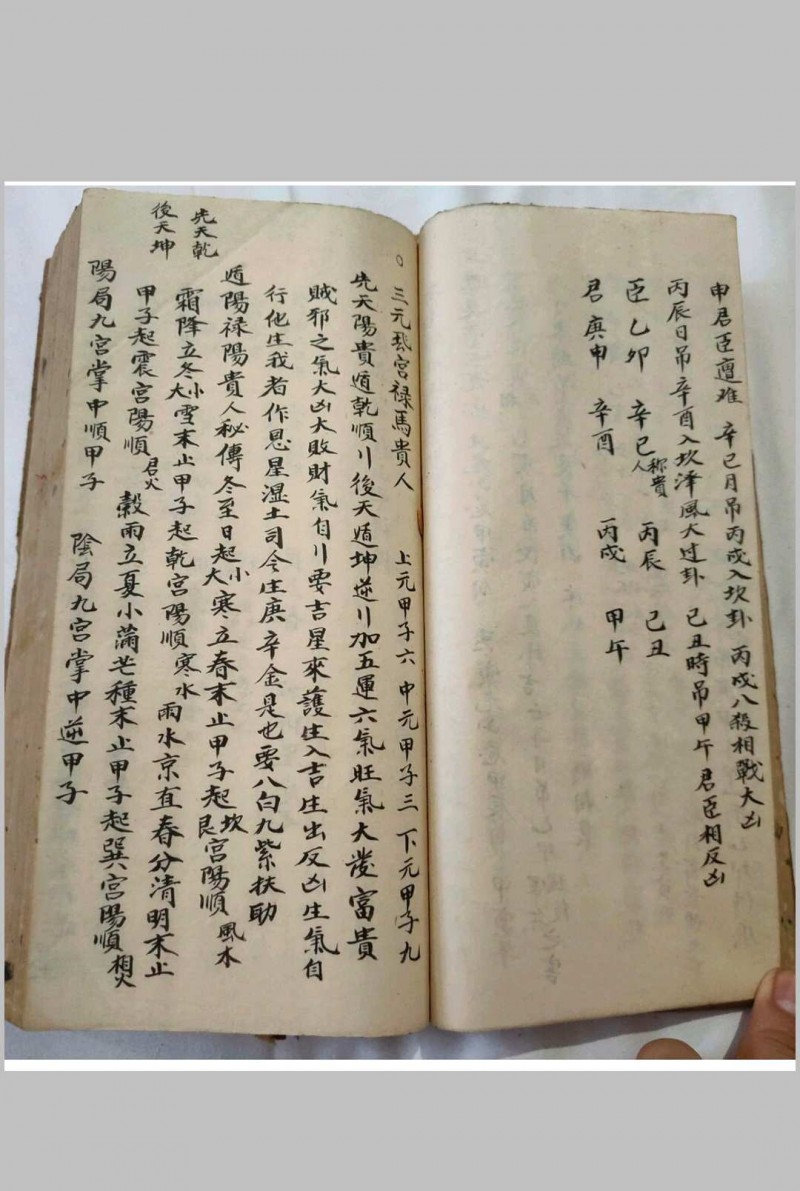 申君臣遭难 辛巳月吊丙戌入坎卦 丙戌八殺相戰大凶
丙辰日吊辛酉入坎泽風大过卦 己丑時吊甲午君臣相反凶
臣乙卯 辛巳人称貴 丙辰 己丑
君庚申 辛酉 丙戌 甲午
○三元飛宫禄馬貴人 上元甲子六 中元甲子三 下元甲子九
先天陽貴遁乾順刂後天遁坤逆刂加五運六氣旺氣大發富貴
賊邪之氣大凶大敗財氣自刂要吉星來護生入吉生出反凶生氣自
行他生我者作恩星湿土司令生庚辛金是也要八白九紫扶助
遁陽禄陽貴人秘傳冬至日起小大寒立春末止甲子起坎艮宫陽順風木
霜降立冬小大雪末止甲子起乾宫陽順寒水 雨水京直春分清明末止
甲子起震宫陽順君火 穀雨立夏小蒲芒種末止甲子起巽宫陽順相火
陽局九宫掌中順甲子 陰局九宫掌中逆甲子
先天乾
後天坤